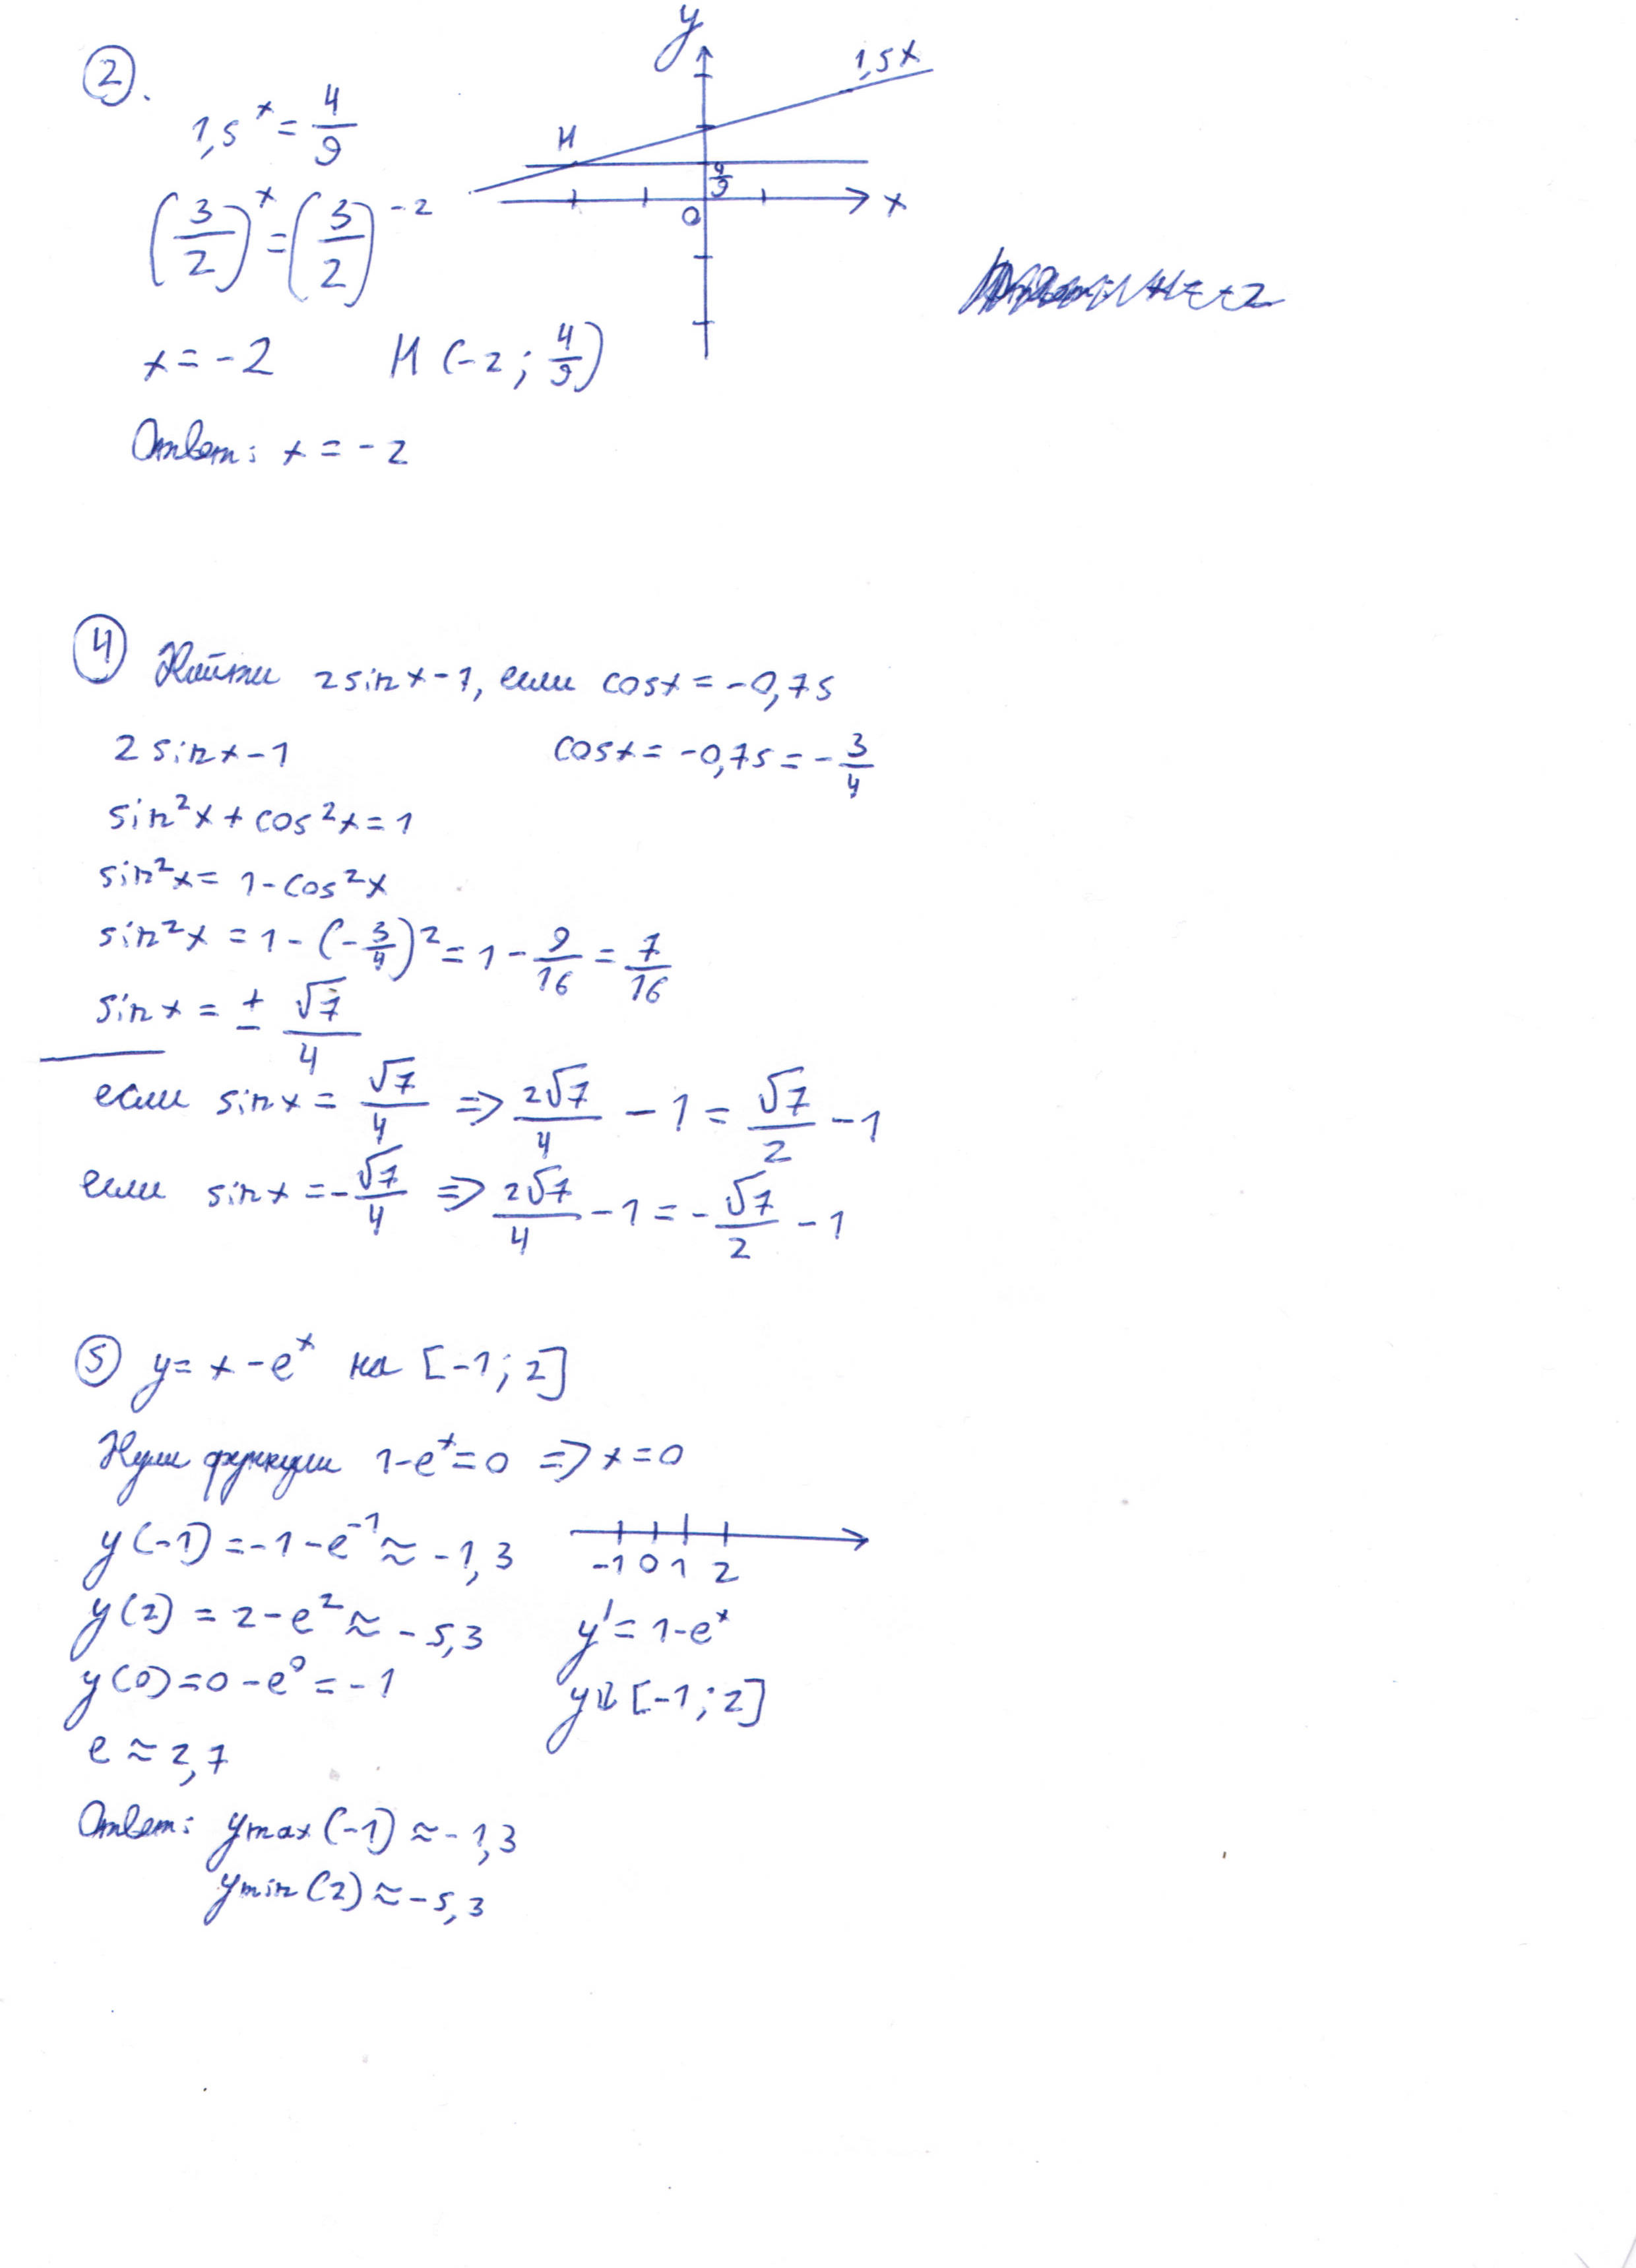 ②.
1,5^x = 4/9
(3/2)^x = (3/2)^-2
x = -2 H (-2; 4/9)
Ответ: x = -2
y
1,5x
H
4/9
O
x
④ Найти 2sinx-1, если cosx = -0,75
2sinx-1 cosx = -0,75 = -3/4
sin²x + cos²x = 1
sin²x = 1-cos²x
sin²x = 1 - (-3/4)² = 1 - 9/16 = 7/16
sinx = ± √7/4
если sinx = √7/4 => 2√7/4 - 1 = √7/2 - 1
если sinx = -√7/4 => 2√7/4 - 1 = -√7/2 - 1
⑤ y = x - e^x на [-1; 2]
Нули функции 1-e^x = 0 => x = 0
y(-1) = -1 - e^-1 ≈ -1,3
-1 0 1 2
y(2) = 2 - e² ≈ -5,3 y' = 1-e^x
y(0) = 0 - e⁰ = -1 y⇓ [-1; 2]
e ≈ 2,7
Ответ: ymax(-1) ≈ -1,3
ymin(2) ≈ -5,3